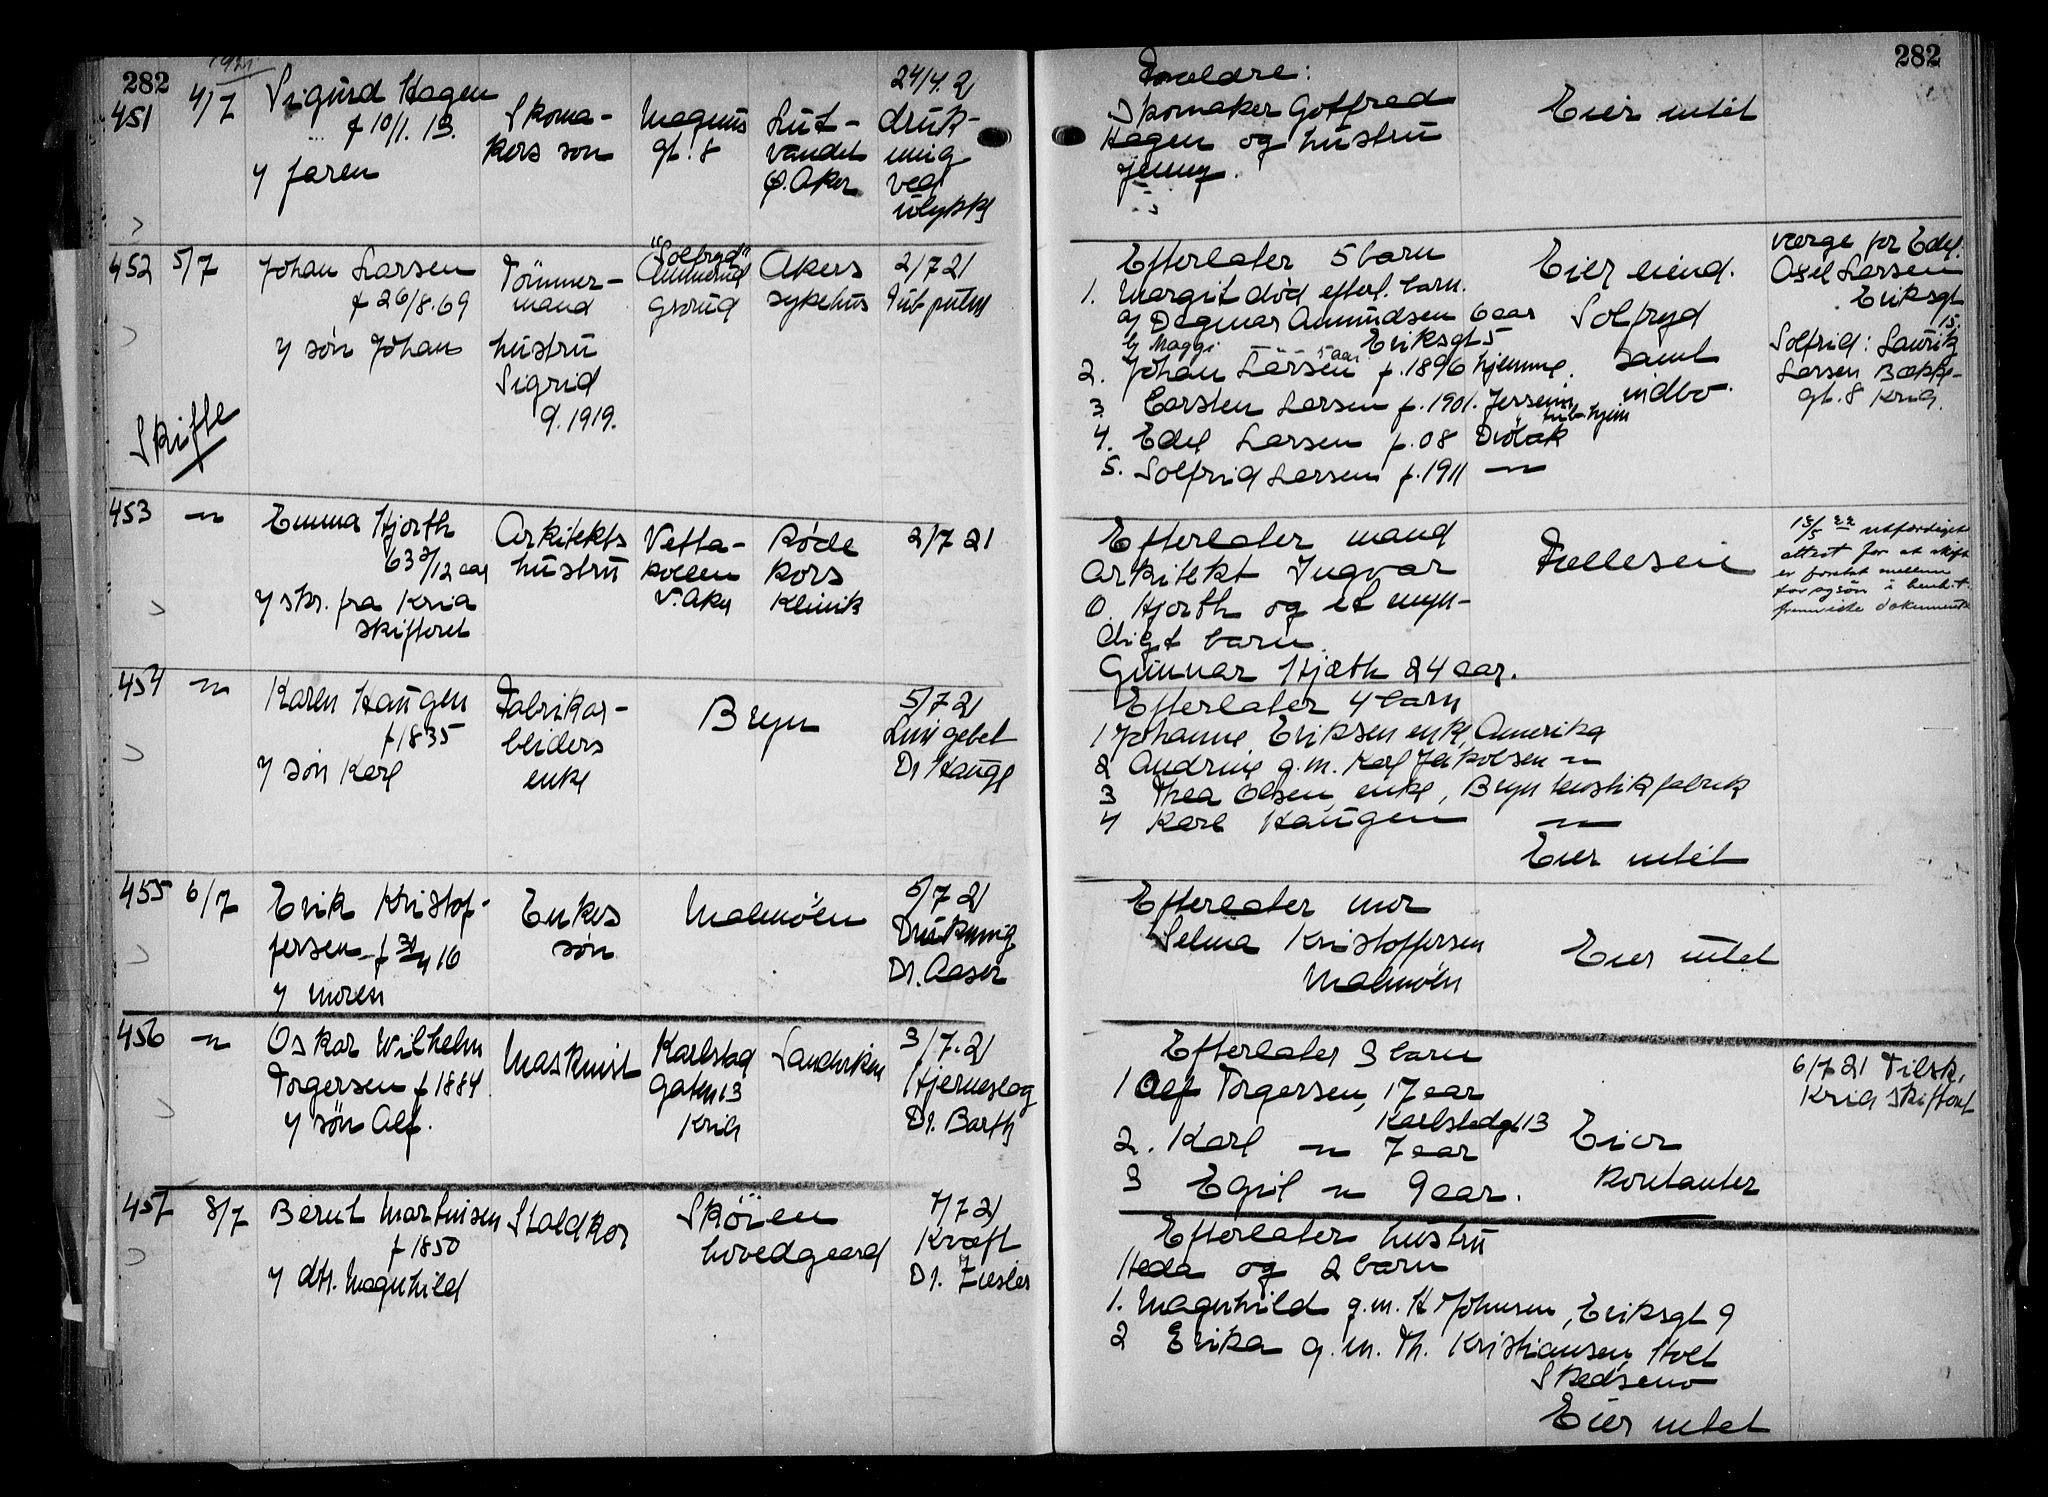 282
1921
451
4/7
Sigurd Hagen
f 10/1. 13.
y faren
Skoma-
kers søn
Magnus
gt. 8
Lut-
vandet
Ø. Aker
24/4. 2
druk-
ning
ved
ulykke
282
Forældre:
Skomaker Gotfred
Hagen og hustru
Jenny.
Eier intet
452
5/7
Johan Larsen
f 26/8.69
y søn Johan
Skifte
Tömmer-
mand
hustru
Sigrid
d. 1919.
"Solfryd"
Ammerud
Grorud
Akers
sykehus
2/7 21
Tub pulm
Efterlater 5 barn
1. Margit död efterl. barn.
a) Dagmar Amundsen 6 aar
b) Maggi 5 aar Eriksgt 5
2. Johan Larsen f. 1896 hjemme.
3 Carsten Larsen f. 1901.
4. Edel Larsen f. 08 Dröbak
5. Solfrid Larsen f. 1911 —"—
Eier eiend.
Solfryd
samt
indbo.
værge for Edel.
Axel Larsen
Eriksgt
15.
Solfrid: Laurik
Larsen Bække-
gt. 8 Kria.
453
—"—
Emma Hjorth
63 3/12 aar
y skr. fra Kria
skifteret
Arkitekts
hustru
Vetta-
kollen
V. Aker
Røde
Kors
Klinik
2/7 21
Efterlater mand
Arkitekt Ingvar
O. Hjorth og et myn-
digt barn
Gunnar Hjorth 24 aar.
Fællesein
utfærdiget
attest for at skifte
er foretat mellem
far og søn i henh. t.
fremviste dokumenter
454
—"—
Karen Haugen
f 1835
y søn Karl
Fabrikar-
beiders
enke
Bryn
5/7 21
Dr Hauge
Efterlater 4 barn
1 Johanne Eriksen enke, Amerika
2 Andrine g.m. Karl Jakobsen —"—
3 Thea Olsen, enke, Bryn fabrik
4 Karl Haugen —"—
Eier intet
455
6/7
Erik Kristof-
fersen f 16
y moren
Enkes
søn
Malmöen
5/7 21
Drukning
Dr. Aaser
Efterlater mor
Selma Kristoffersen
Malmöen
Eier intet
456
—"—
Oskar Wilhelm
Torgersen f 1884
y søn Alf.
Maskinist
Karlstad
gaten 13
Kria
Sandviken
3/7.21
Hjerneslag
Dr. Barth
Efterlater 3 barn
1 Alf Torgersen, 17 aar
Karlstadgt 13
2. Karl —"— 7 aar
3 Egil —"— 9 aar.
Eier
kontanter
6/7 21 Tilsk.
Kria skifteret
457
8/7
Bernt Martinsen
f 1850
y dtr. Magnhild
Staldkar
Sköien
hovedgaard
7/7 21
Kræft
Efterlater hustru
Heda og 2 barn
1. Magnhild g.m. H Johnsen, Eriksgt 9
2 Erika g.m. Th. Kristiansen, Holt
Skedsmo
Eier intet